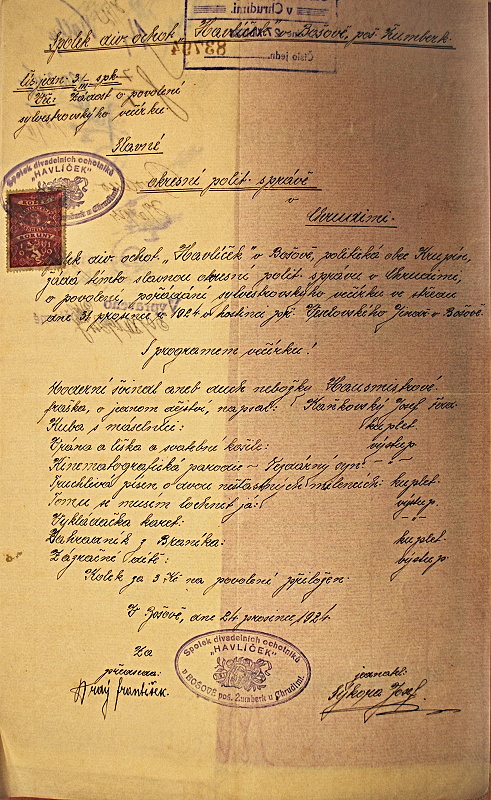 v Chrudimi.
Číslo jedn.
83794
Spolek div. ochot. „Havlíček" v Bošově, poš. Žumberk.
Čís. jedn. 31/III spk.
Věc: Žádost o povolení
sylvestrovského večírku
Slavné
okresní polit. správě
v
Chrudimi.
Spolek divadelních ochotníků
„HAVLÍČEK"
Spolek div. ochot. „Havlíček" v Bošově, politická obec
žádá tímto slavnou okresní polit. správu v Chrudimi,
o povolení pořádání sylvestrovského večírku ve středu
dne 31 prosince v 1924 v hostinci p. v Bošově.
S programem večírku!
Moderní švindl aneb duch nebožky Hausmistrové
fraška, o jednom dějství, napsal: Kaňkovský Josef
Kuba s máselnicí: kuplet.
Vrána a liška a svatební košile: výstup
Kinematografická parodie – Nezdárný syn: – " –
Truchlivá píseň o dvou nešťastných milencích: kuplet.
Tomu se musím bochnit já: výstup.
Vykládačka karet: – " –
Zahradník z Braníka: kuplet
Zázračné dítě: výstup
Kolek za 3 Kč na povolení přiložen:
V Bošově, dne 24 prosince 1924.
Za
předseda:
František.
Spolek divadelních ochotníků
„HAVLÍČEK"
v BOŠOVĚ poš. Žumberk u Chrudimi.
jednatel:
Sýkora Josef.